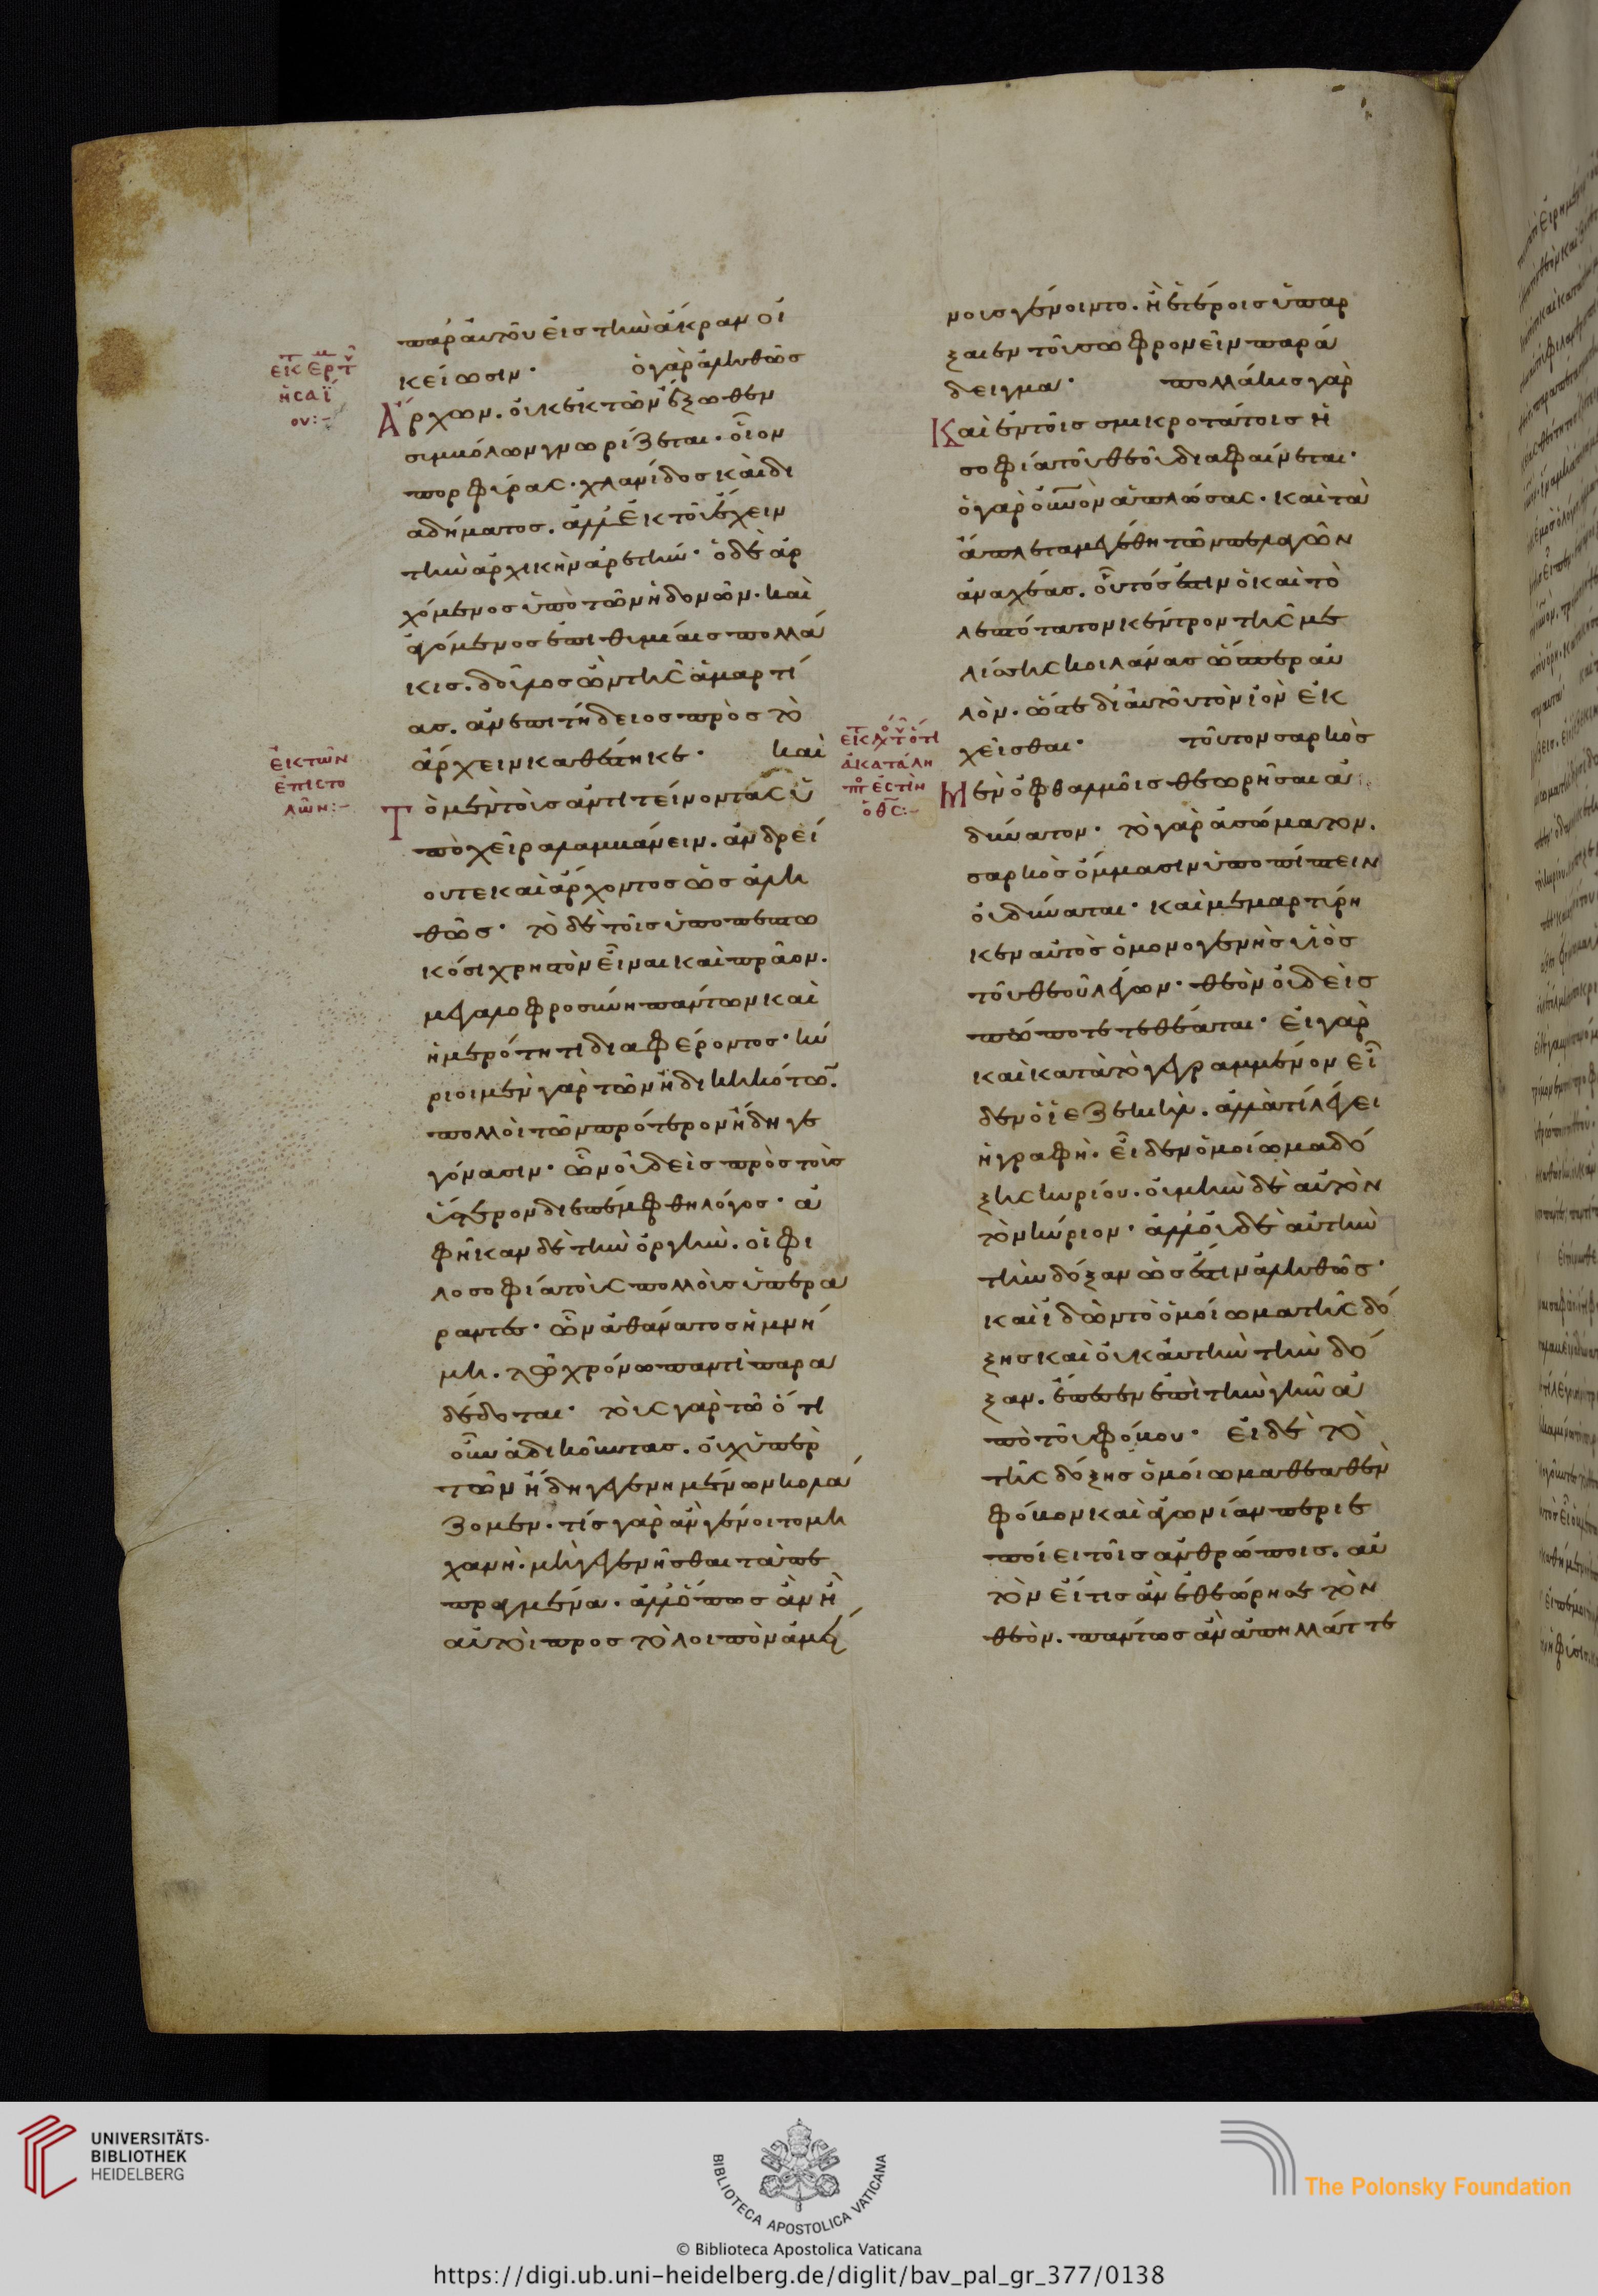 παρ' αὐτοῦ εἰς τὴν ἄκραν οἰ
κείωσιν· ὁ γὰρ ἀληθῶς
Ἄρχων. οὐκ ἐκ τῶν ἔξωθεν
συμβόλων γνωρίζεται· οἷον
πορφύρας· χλανίδος καὶ δι
αδήματος. ἀλλ' ἐκ τοῦ ἔχειν
τὴν ἀρχικὴν ἀρετήν· ὁ δὲ ἀρ
χόμενος ὑπὸ τῶν ἡδονῶν. καὶ
ἀγόμενος ἐπιθυμίαις πολλά
κις. δοῦλος ὢν τῆς ἁμαρτί
ας. ἀνεπιτήδειος πρὸς τὸ
ἄρχειν καθέστηκε· καὶ
Τὸ μὲν τοὺς ἀντιτείνοντας ὑ
πὸ χεῖρα λαμβάνειν. ἀνδρεί
ου τε καὶ ἄρχοντος ὡς ἀλη
θῶς· τὸ δὲ τοῖς ὑποπεπτω
κόσι χρηστὸν εἶναι καὶ πρᾶον.
μεγαλοφροσύνη πάντων καὶ
ἡμερότητι διαφέροντος· κύ
ριοι μὲν γὰρ τῶν ἠδικηκότων
πολλοὶ τῶν πρότερον ἤδη γε
γόνασιν· ὧν οὐδεὶς πρὸς τοὺς
ὕστερον διεπέμφθη λόγος· ἀ
φῆκαν δὲ τὴν ὀργὴν. οἱ φι
λοσοφίᾳ τοὺς πολλοὺς ὑπερά
ραντες· ὧν ἀθάνατος ἡ μνή
μη. τῷ χρόνῳ παντὶ παρα
δέδοται· τοὺς γὰρ τῷ ὅτι
οὖν ἀδικοῦντας. οὐχ ὑπὲρ
τῶν ἤδη γεγενημένων κολά
ζομεν. τίς γὰρ ἂν γένοιτο μη
χανὴ. μὴ γεγενῆσθαι τὰ πε
πραγμένα. ἀλλ' ὅπως ἂν ἢ
αὐτοὶ προς τὸ λοιπὸν ἀμεί
νους γένοιντο. ἢ ἑτέροις ὑπάρ
ξαιεν τοῦ σωφρονεῖν παρά
δειγμα· πολλάκις γὰρ
Καὶ ἐν τοῖς σμικροτάτοις ἡ
σοφία τοῦ θεοῦ διαφαίνεται·
ὁ γὰρ οὐνὸν ἁπλώσας. καὶ τὰ
ἄπλετα μεγέθη τῶν πελαγῶν
ἀναχέας. οὗτός ἐστιν ὁ καὶ τὸ
λεπτότατον κέντρον τῆς με
λίσσης κοιλάνας ὥσπερ αὐ
λὸν. ὥστε δι' αὐτοῦ τὸν ἰὸν ἐκ
χεῖσθαι· τοῦτον σαρκὸς
Μὲν ὀφθαλμοῖς θεωρῆσαι ἀ
δύνατον· τὸ γὰρ ἀσώματον.
σαρκὸς ὄμμασιν ὑποπίπτειν
οὐ δύναται· καὶ μεμαρτύρη
κεν αὐτὸς ὁ μονογενὴς υἱὸς
τοῦ θεοῦ λέγων· θεὸν οὐδεὶς
πώποτε τεθέαται· εἰ γὰρ
καὶ κατὰ τὸ γεγραμμένον εἶ
δεν ὁ ἰεζεκιὴλ. ἀλλὰ τί λέγει
ἡ γραφὴ. εἶδεν ὁμοίωμα δό
ξης κυρίου. οὐ μὴν δὲ αὐτὸν
τὸν κύριον· ἀλλ' οὐδὲ αὐτὴν
τὴν δόξαν ὡς ἔστιν ἀληθῶς·
καὶ ἰδὼν τὸ ὁμοίωμα τῆς δό
ξης καὶ οὐκ αὐτὴν τὴν δό
ξαν. ἔπεσεν ἐπὶ τὴν γῆν ἀ
πὸ τοῦ φόβου· εἰ δὲ τὸ
τῆς δόξης ὁμοίωμα θεαθὲν
φόβον καὶ ἀγωνίαν περιε
ποίει τοῖς ἀνθρώποις. αὐ
τὸν εἴ τις ἂν ἐθεώρησε τὸν
θεὸν. πάντως ἂν ἀπηλλάττε
ἐκ τῶν
ἐπιστο
λῶν:-
ἀκατάλη
UNIVERSITÄTS-
BIBLIOTHEK
HEIDELBERG
BIBLIOTECA APOSTOLICA VATICANA
The Polonsky Foundation
© Biblioteca Apostolica Vaticana
https://digi.ub.uni-heidelberg.de/diglit/bav_pal_gr_377/0138